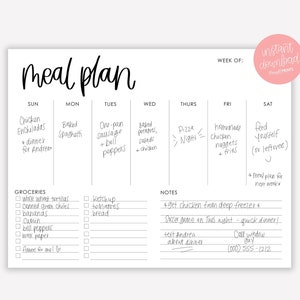 instant
download
meal plan
WEEK OF:
SUN MON TUES WED THURS FRI SAT
Chicken
Enchiladas
+ dinner
for Andrea
Baked
Spaghetti
one-pan
sausage
+ bell
peppers
baked
potatoes,
salad +
chicken
PIZZA
Night!
Homemade
chicken
nuggets
+ fries
Feed
yourself
(or leftovers)
:)
* meal plan for
next week *
GROCERIES
whole wheat tortillas
canned green chiles
bananas
bell peppers
wax paper
ketchup
tomatoes
bread
NOTES
* get chicken from deep freezer *
Soccer game on Tues night - quick dinner!
text Andrea
about dinner
(000) 555-1212